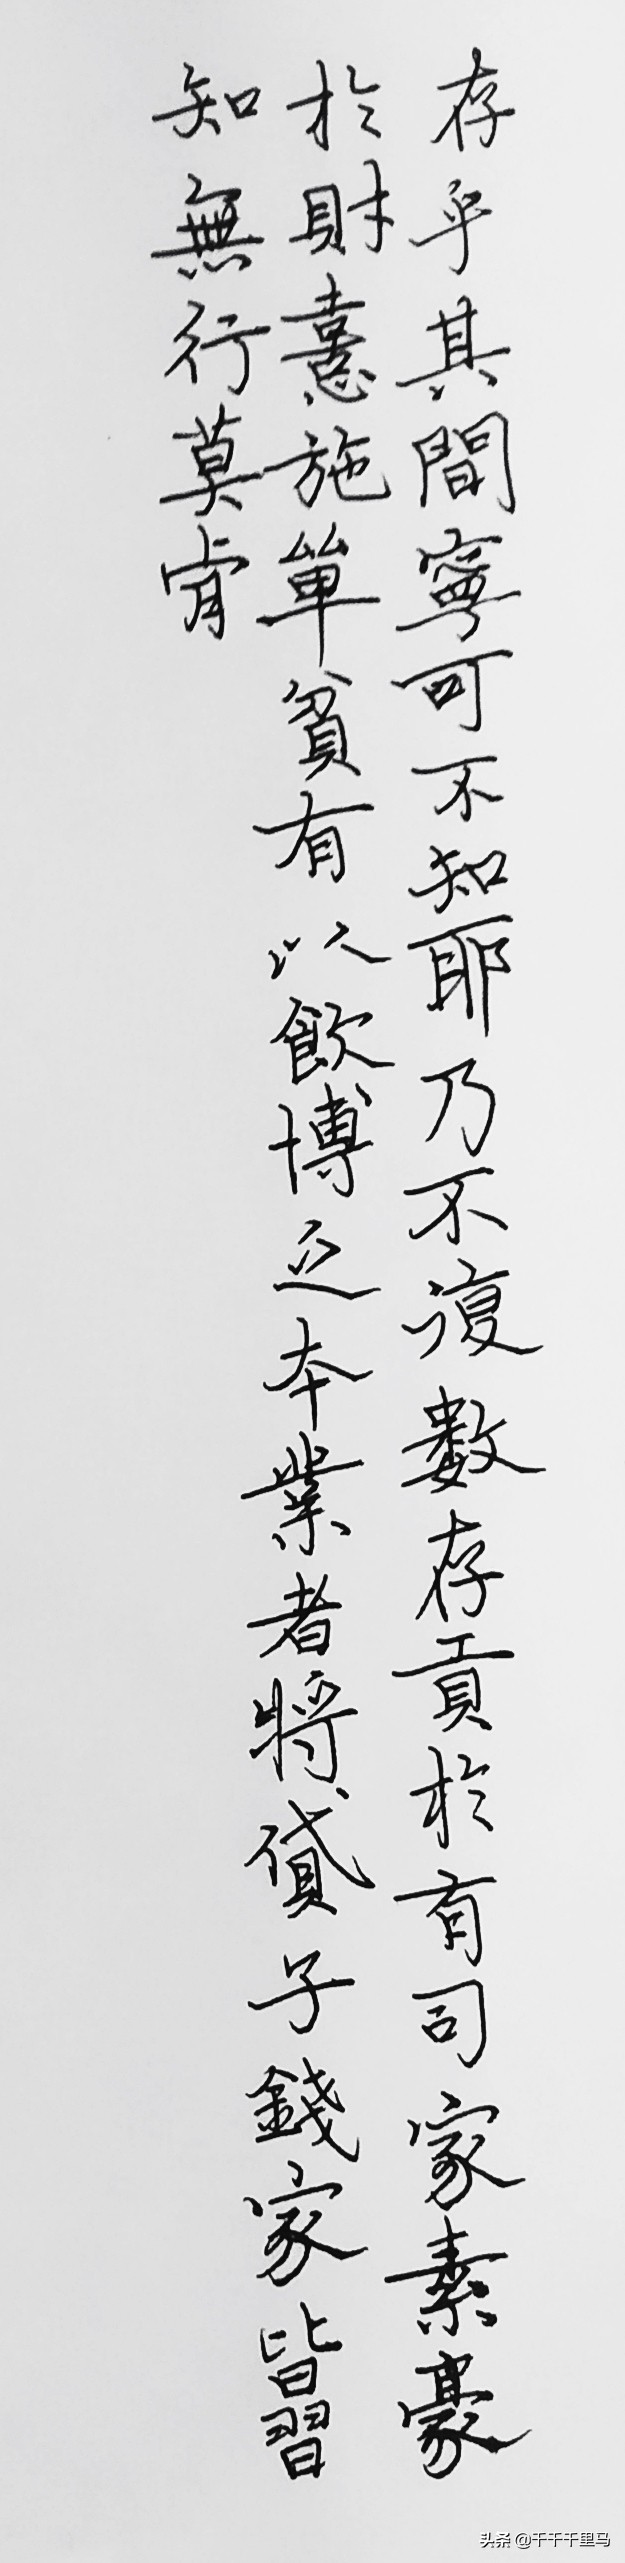 存乎其間寧可不知耶乃不復數存貢於有司家素豪
於財憙施單貧有以飲博之本業者將貸子錢家皆習
知無行莫肯
头条 @千千千里马